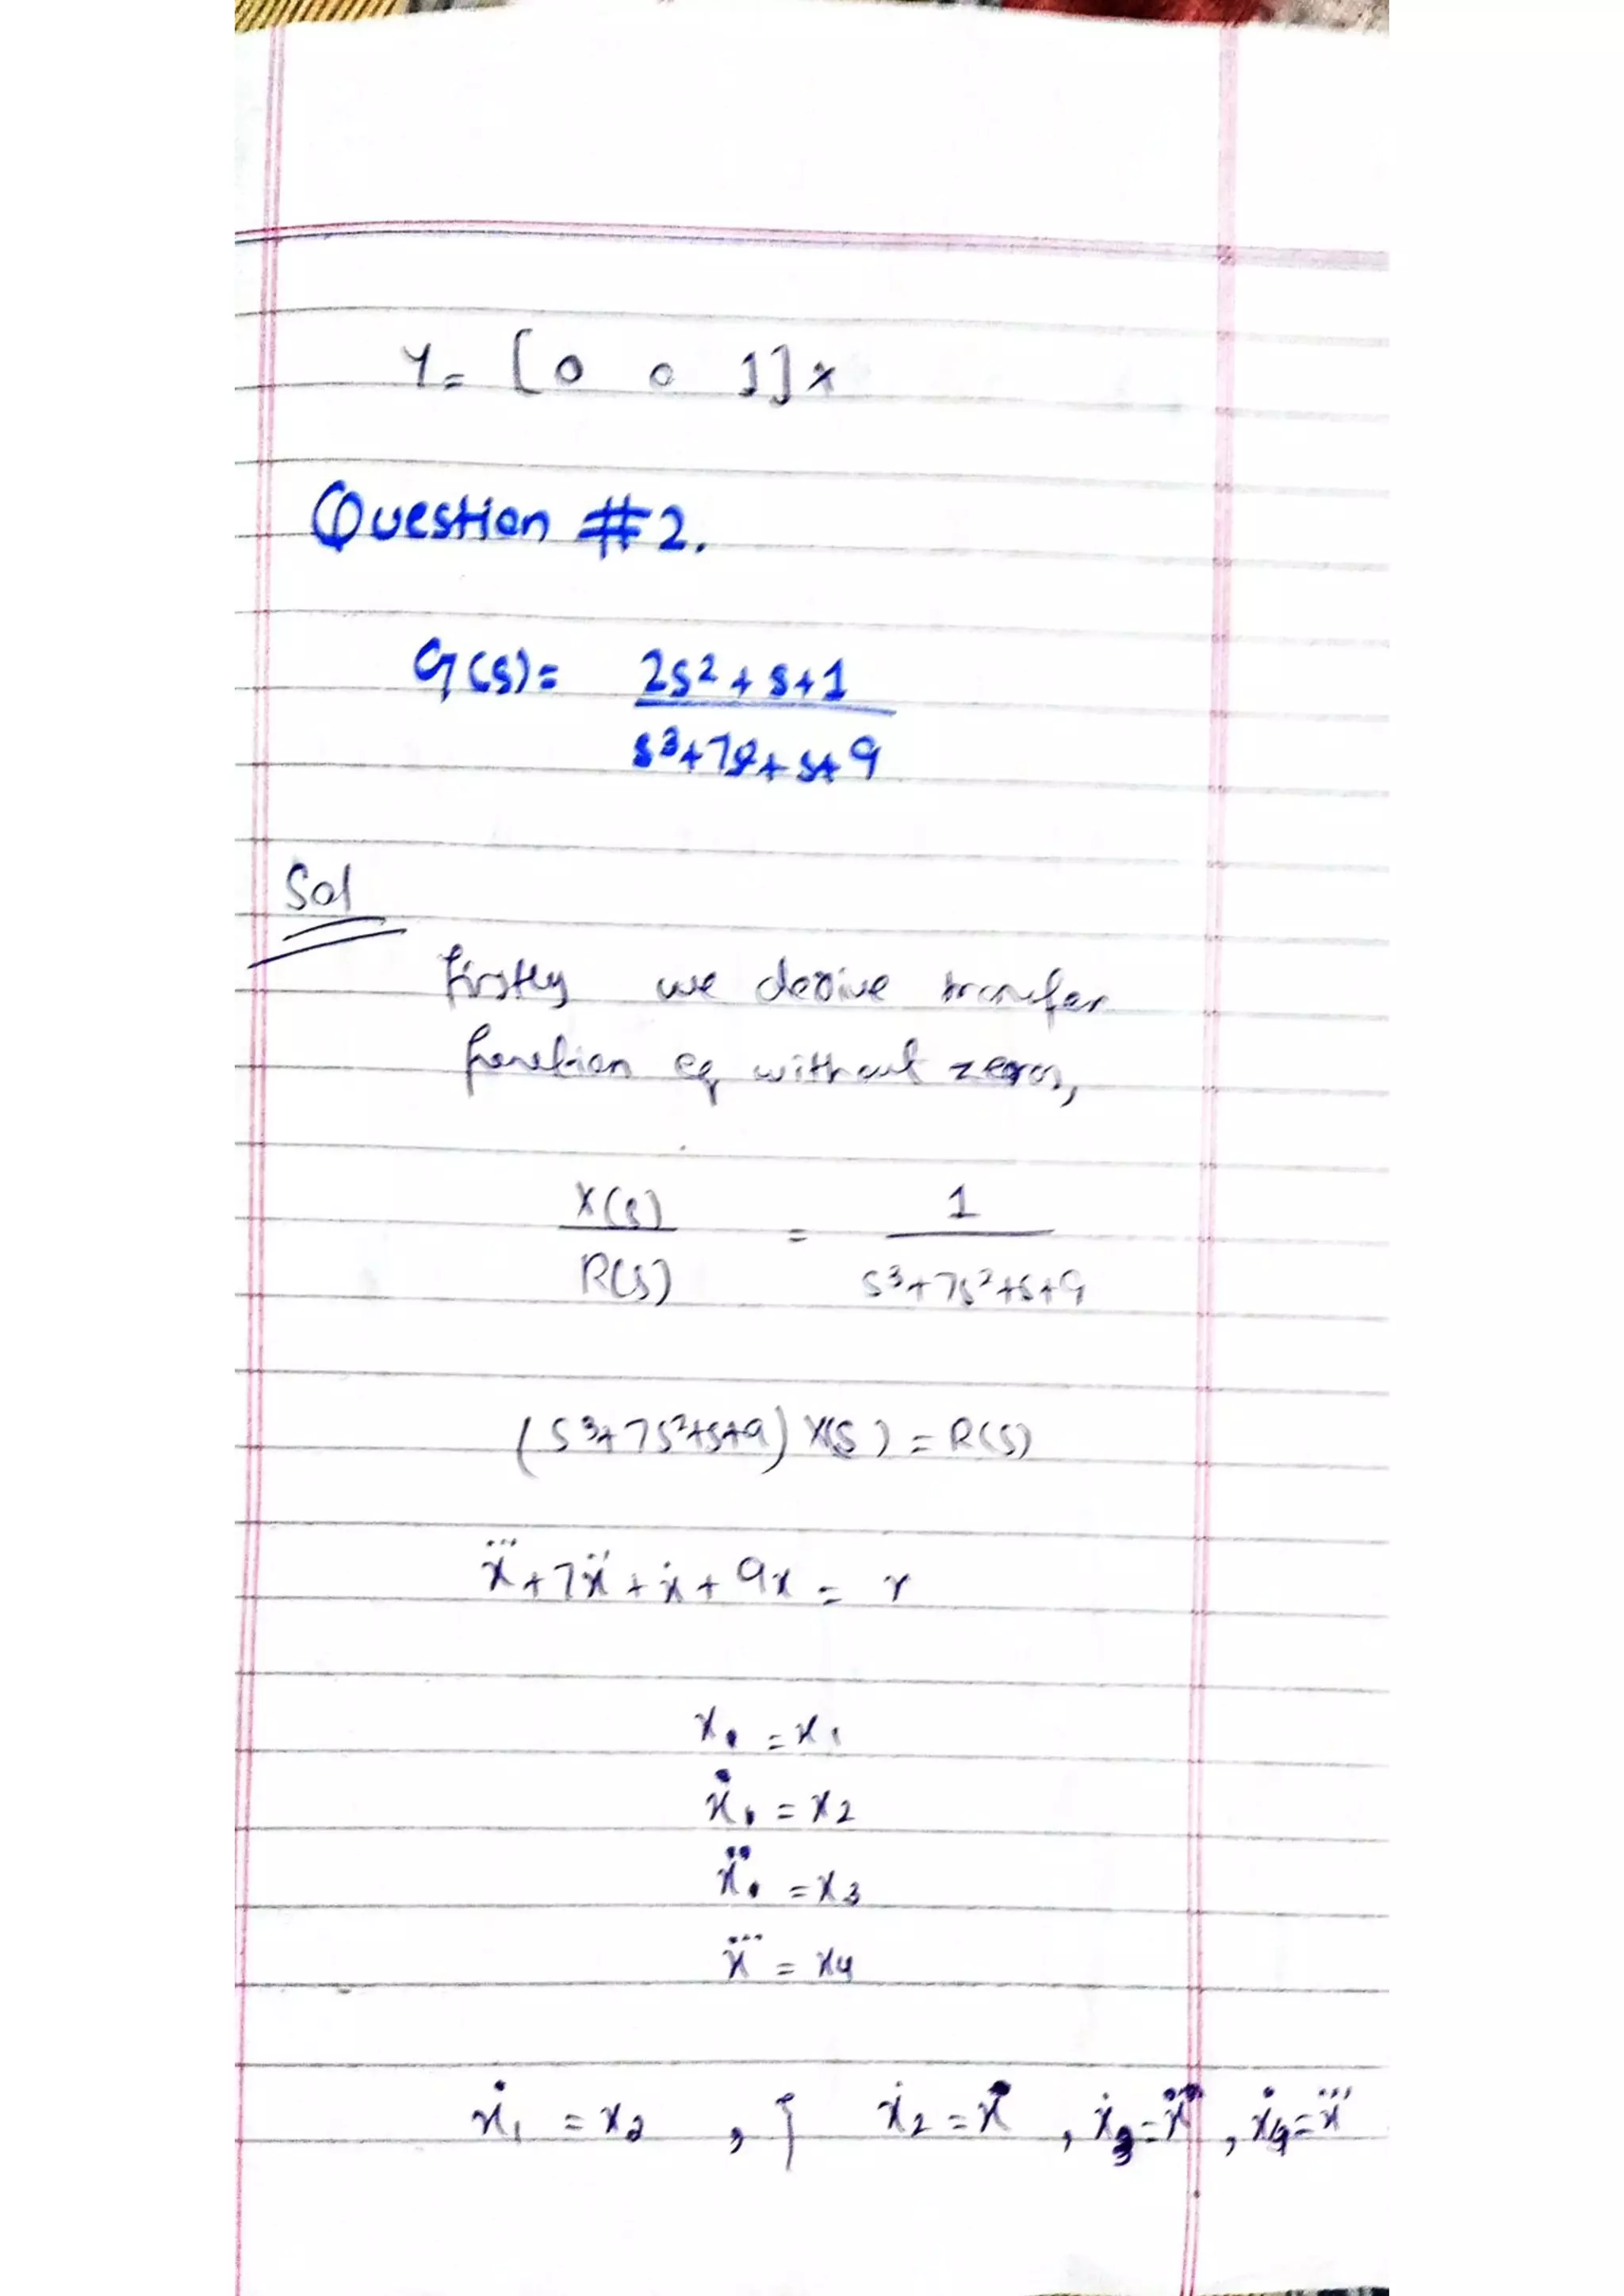 Y = [0 0 1] x
Question #2.
G(s) = 2s² + s + 1
s³ + 7s² + s + 9
Sol
Firstly we derive transfer
function eq without zeros,
X(s) = 1
R(s) s³+7s²+s+9
(s³+7s²+s+9) X(s) = R(s)
x⃛ + 7ẍ + ẋ + 9x = r
x. = x₁
ẋ. = x₂
ẍ. = x₃
x⃛ = x₄
ẋ₁ = x₂ , } ẋ₂ = ẋ , ẋ₃ = ẍ , ẋ₄ = x⃛